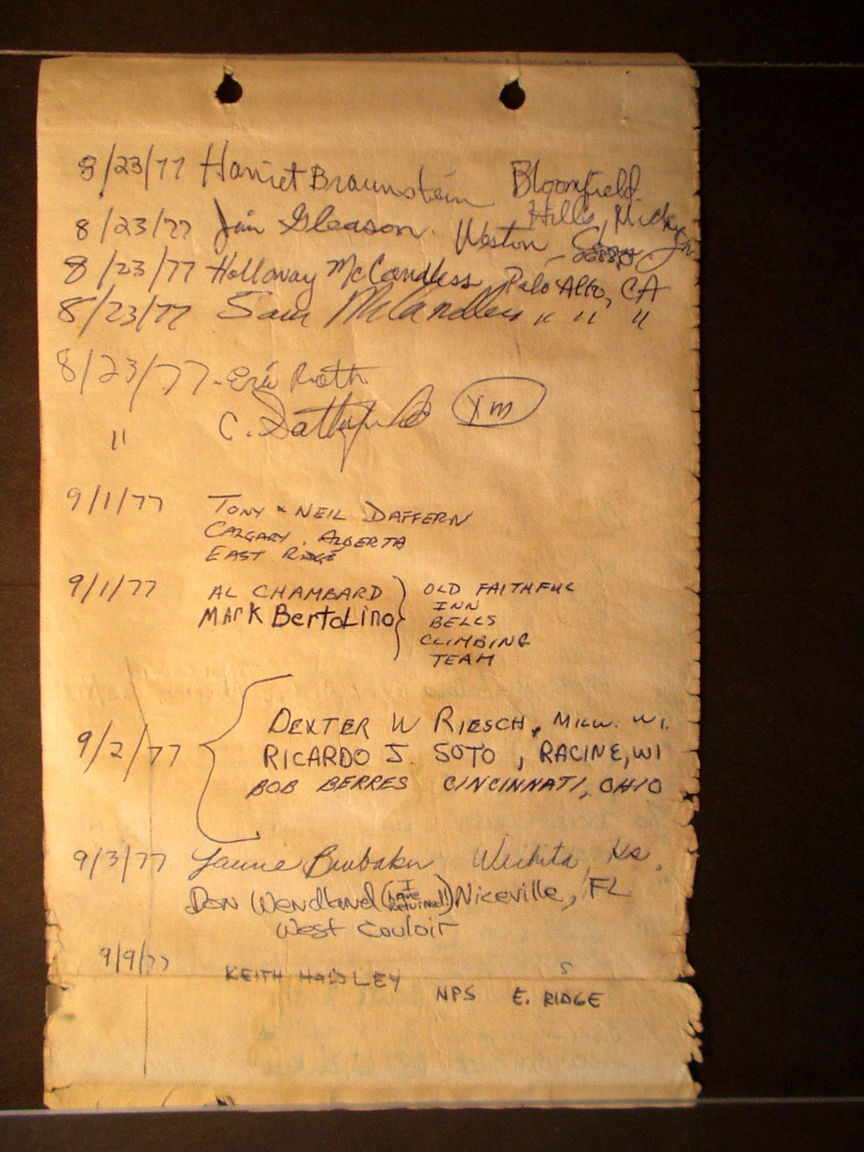 8/23/77 Harriet Braunstein Bloomfield
Hills, Michigan
8/23/77 Jim Gleason. Weston
8/23/77 Holloway McCandless Palo Alto, CA
8/23/77 Sam McCandless " " "
8/23/77 - Eric Roth
" C.
9/1/77 TONY & NEIL DAFFERN
CALGARY, ALBERTA
EAST RIDGE
9/1/77 AL CHAMBARD } OLD FAITHFUL
MArK BertoLino INN
BELLS
CLIMBING
TEAM
9/2/77 { DEXTER W RIESCH, MILW. WI.
RICARDO J. SOTO, RACINE, WI
BOB BERRES CINCINNATI, OHIO
9/3/77 Brubaker Wichita, Ks.
Don Wendland (I have returned!) Niceville, FL
West Couloir
9/9/77 KEITH HADLEY
NPS E. RIDGE